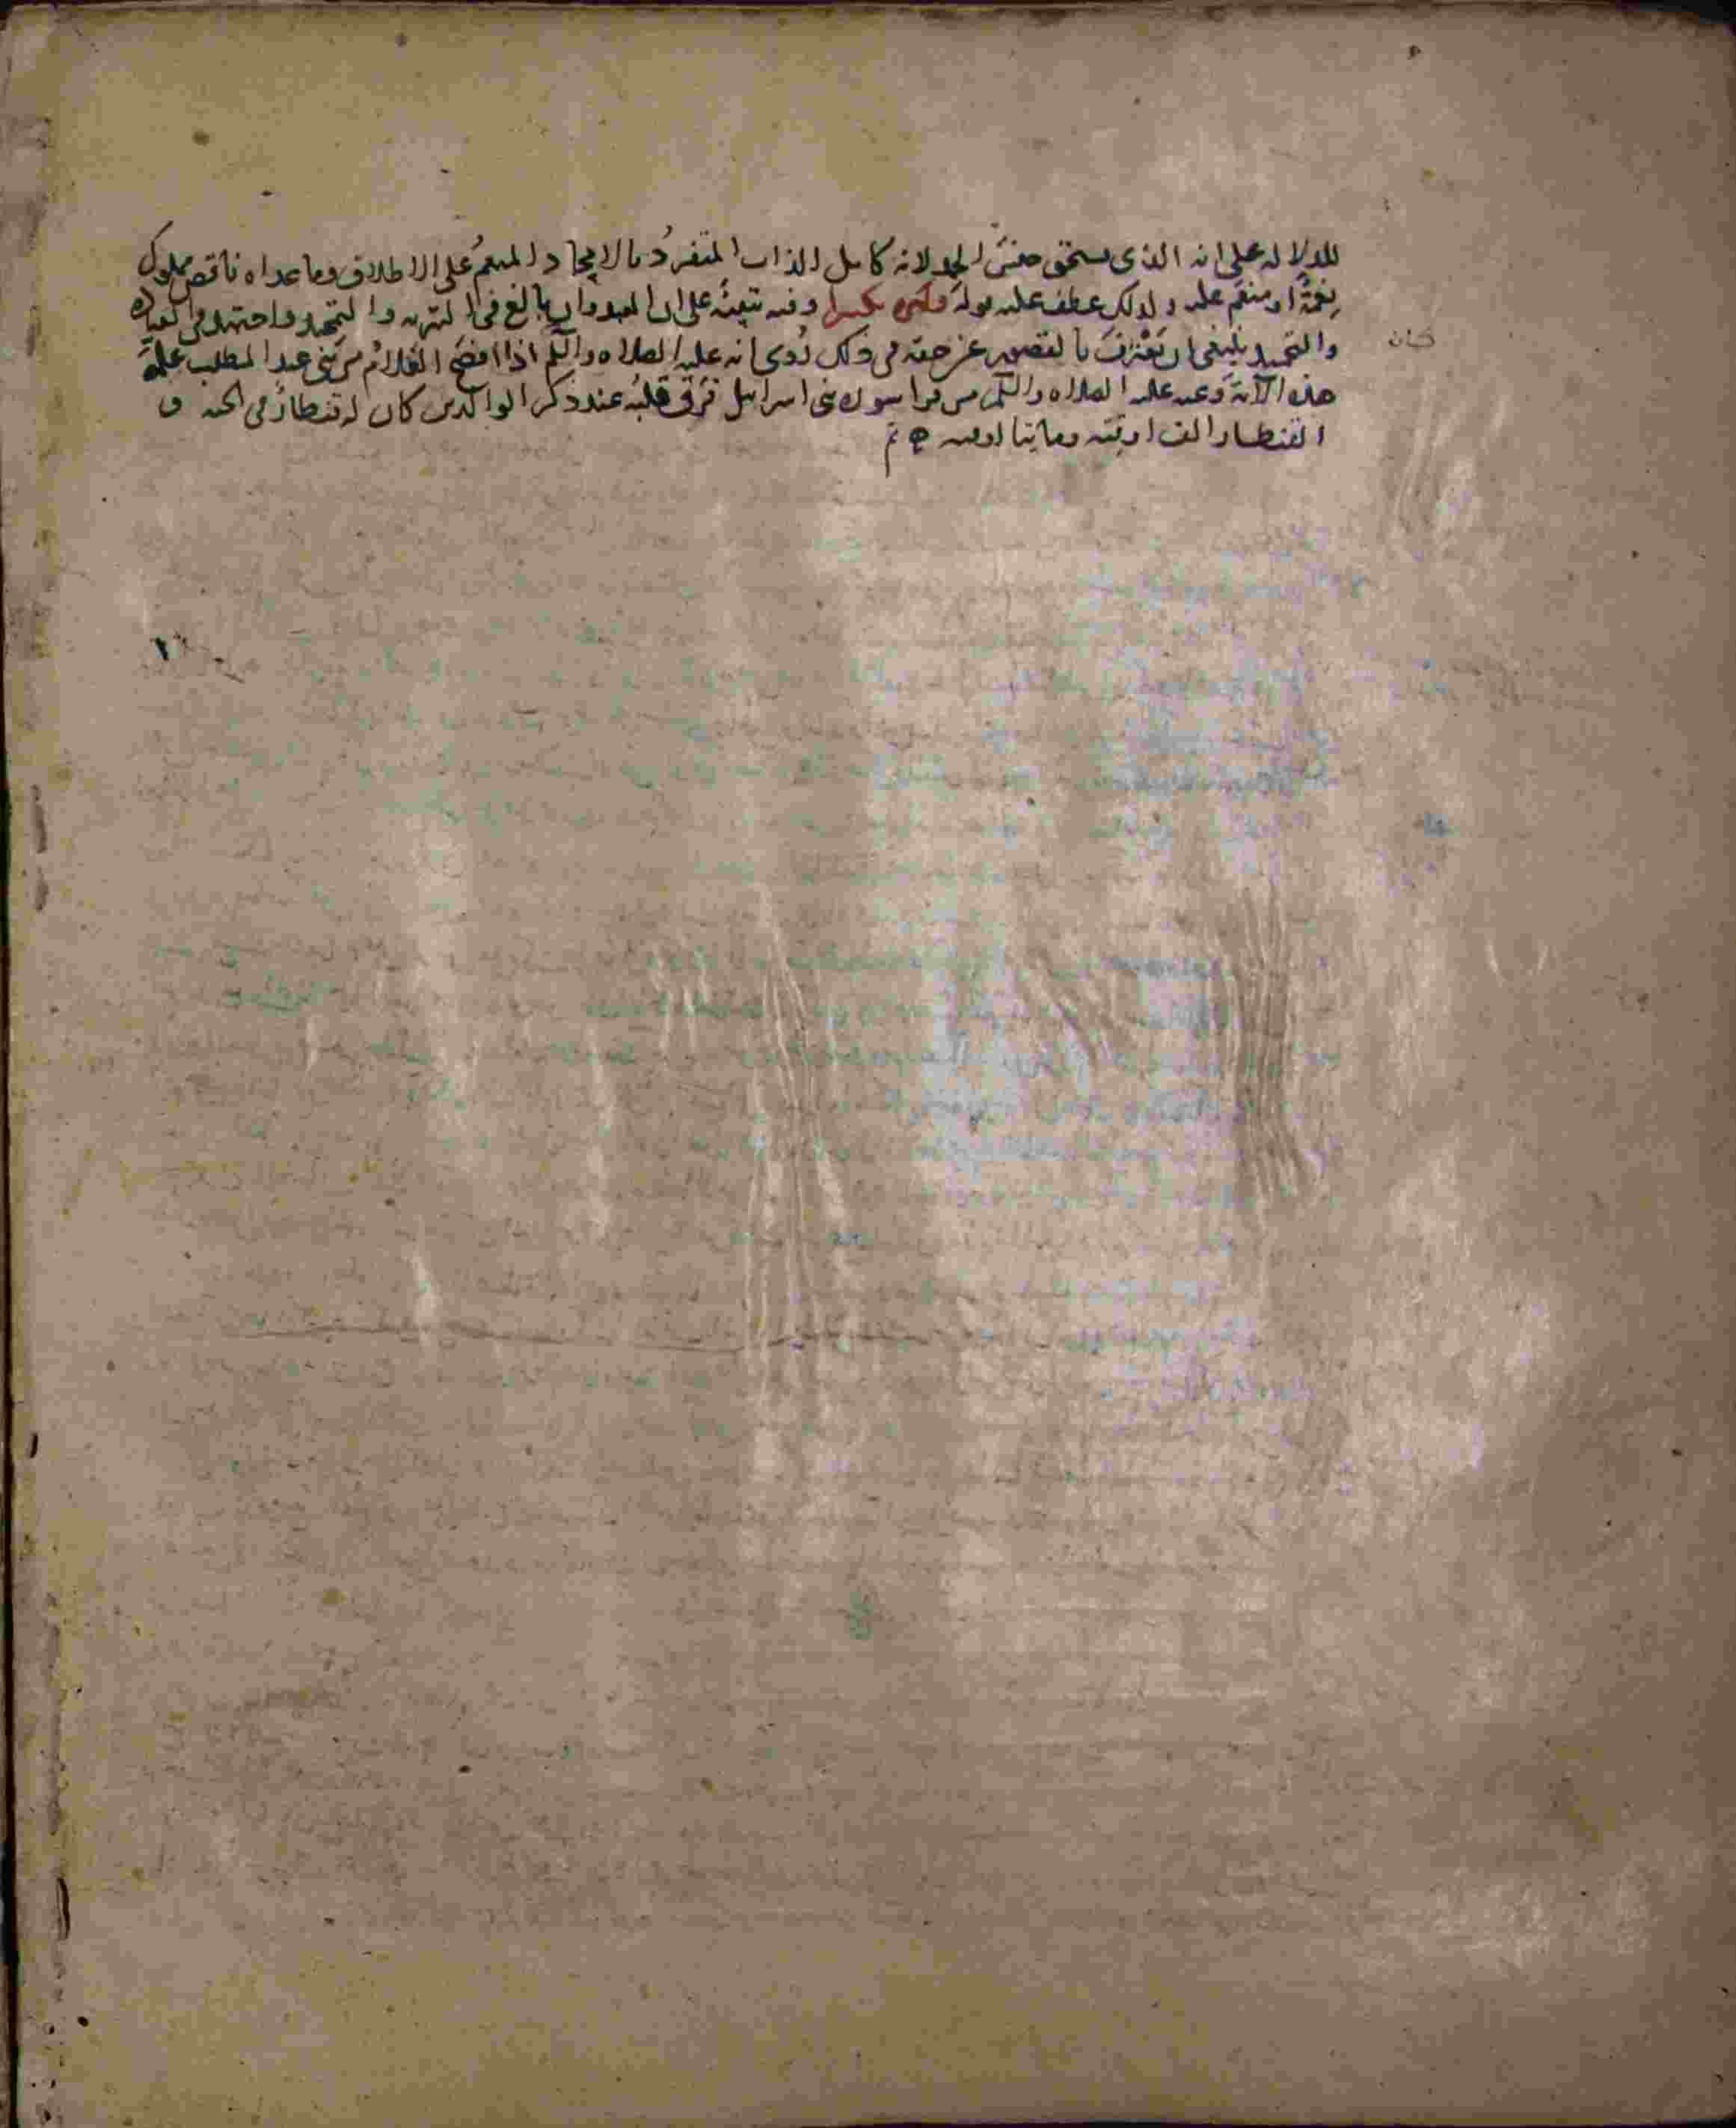 للدلالة على انه الذى يستحق جنس الحمد لانه كامل الذات المتفرد بالايجاد المنعم على الاطلاق وما عداه ناقص مملوك
نعمة او منعم عليه ولذلك عطف عليه قوله وكبره تكبيرا وفيه تنبيه على ان العبد وان بالغ فى التنزيه والتمجيد واجتهد فى العبادة
والتحميد ينبغى ان يعترف بالقصور عن حقه فى ذلك روى انه عليه الصلاة والسلم اذا افصح الغلام من بنى عبد المطلب علمه
هذه الآية وعنه عليه الصلاة والسلم من قرا سورة بنى اسرائيل فرق قلبه عند ذكر الوالدين كان له قنطار فى الجنة و
القنطار الف اوقية ومايتا اوقية تم